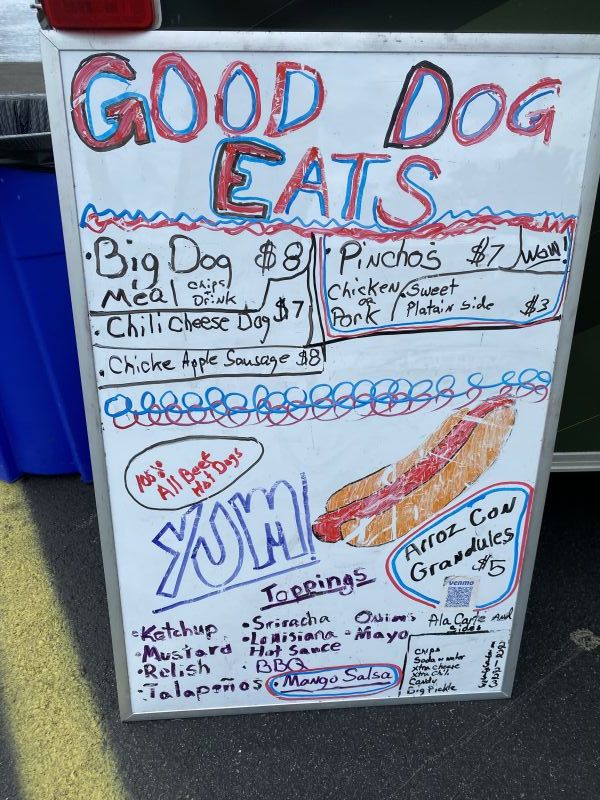 GOOD DOG
EATS
• Big Dog $8
Meal chips/
Drink
• Chili Cheese Dog $7
• Chicke Apple Sausage $8
• Pinchos $7 Wow!
Chicken
or
Pork
Sweet
Platain side $3
100%
All Beef
Hot Dogs
YUM!
Arroz Con
Grandules
$5
venmo
Toppings
• Ketchup
• Mustard
• Relish
• Jalapeños
• Sriracha
• Louisiana
Hot Sauce
• BBQ
• Mango Salsa
• Mayo
Ala Carte And
Sides
Soda or water
xtra cheese
xtra chili
Candy
Big Pickle